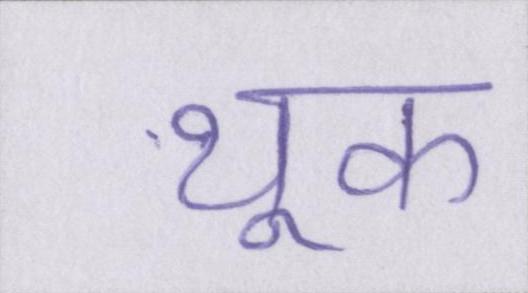 थूक